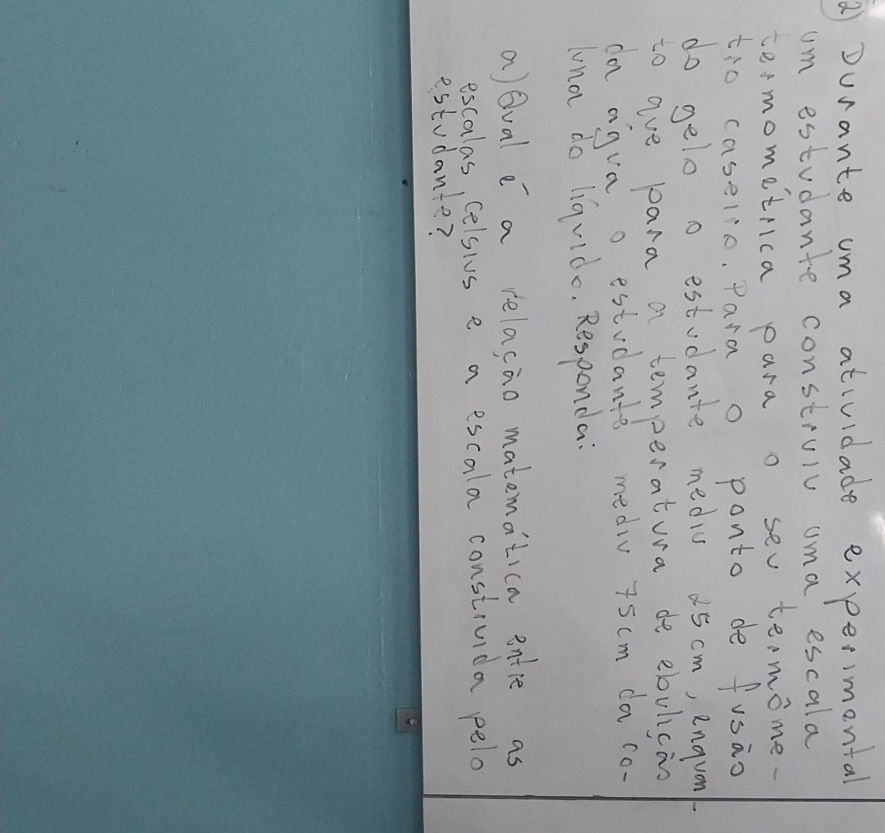 2) Durante uma atividade experimental
um estudante construiu uma escala
termométrica para o seu termôme-
tro caseiro. Para o ponto de fusão
do gelo o estudante mediu 25cm, enquan-
to que para a temperatura de ebulição
da água o estudante mediu 75cm da co-
luna do líquido. Responda:
a) Qual é a relação matemática entre as
escalas, Celsius e a escala construída pelo
estudante?